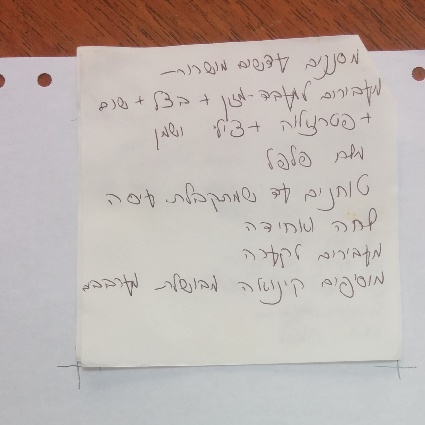 מסננים עדשים מושרות -
מעבירים למעבד-מזון + בצל + שום
+ פטרוזיליה + צ'ילי ושמן
מלח פלפל
טוחנים עד שמתקבלת עיסה
לחה ואחידה
מעבירים לקערה
מוסיפים קינואה מבושלת מערבבים